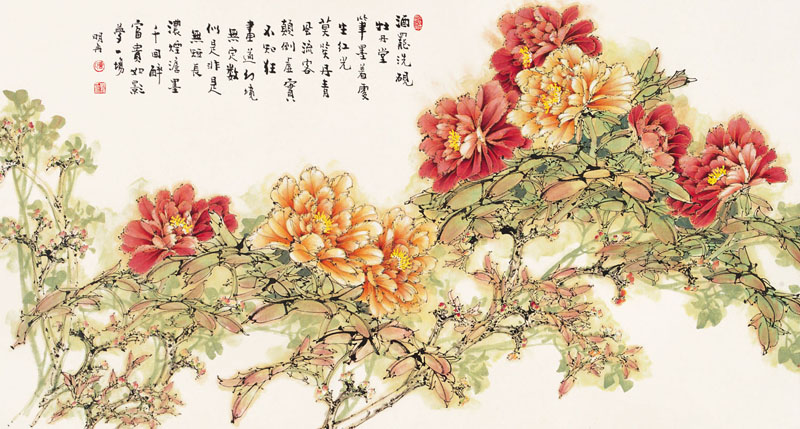 酒罷洗硯
牡丹堂
筆墨着處
生紅光
莫笑丹青
風流客
顛倒虛實
不知狂
畫道幻境
無定数
似是非是
無短長
濃煙澹墨
千回醉
富貴如影
夢一場
明舟